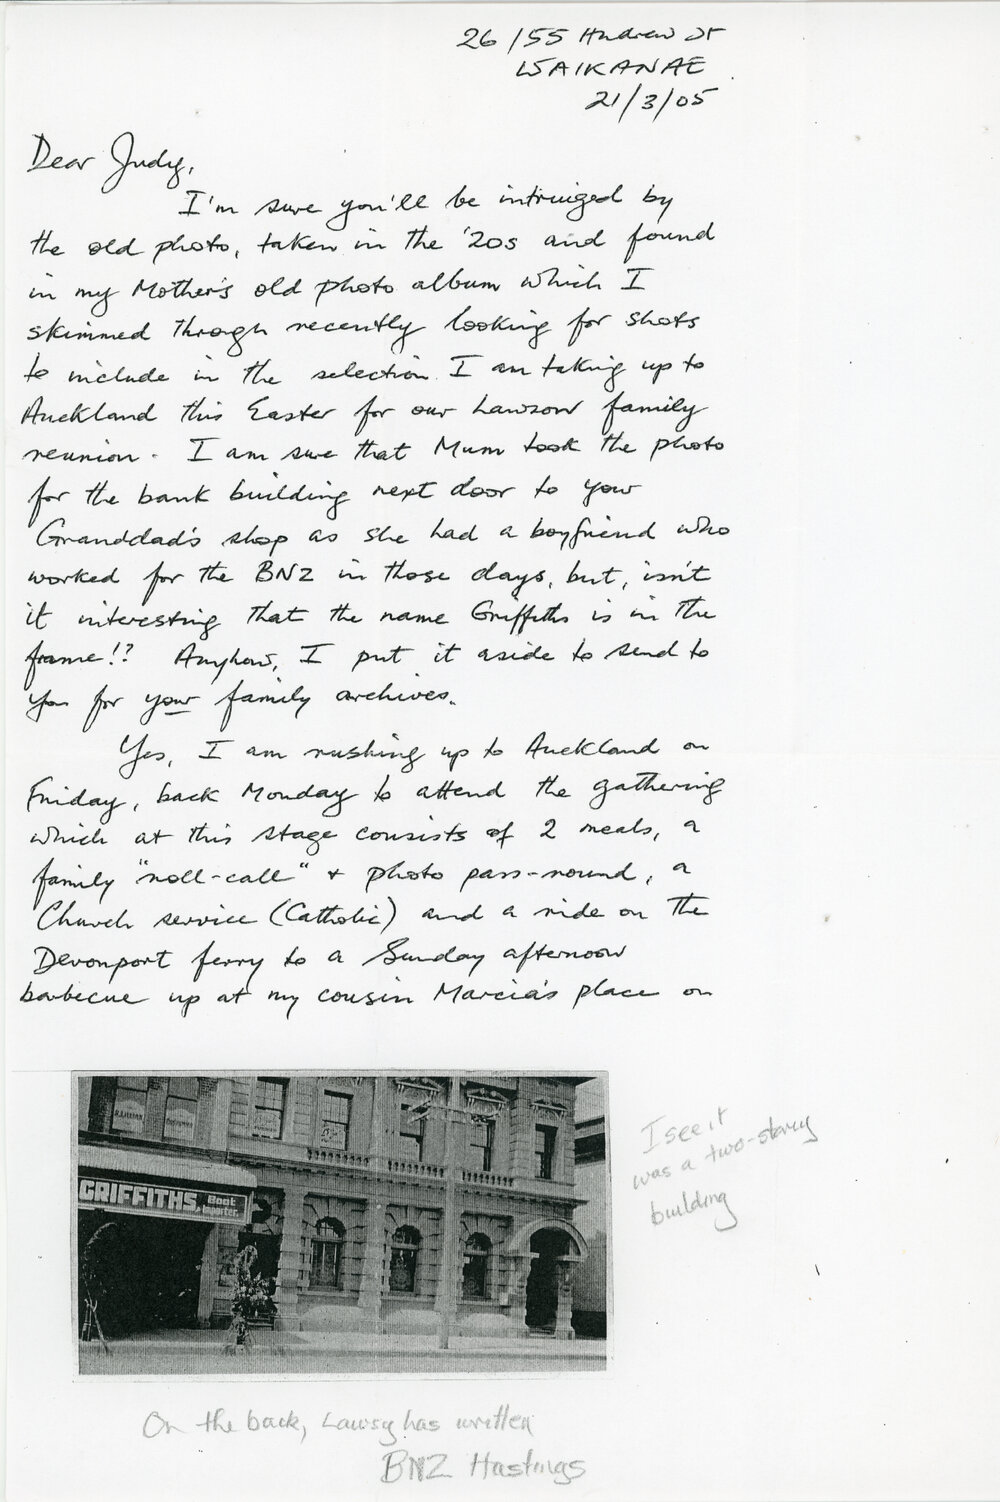 26/55 Andrew St
WAIKANAE
21/3/05
Dear Judy,
I'm sure you'll be intruiged by
the old photo, taken in the '20s and found
in my Mother's old photo album which I
skimmed through recently looking for shots
to include in the selection I am taking up to
Auckland this Easter for our Lawson family
reunion. I am sure that Mum took the photo
for the bank building next door to your
Granddad's shop as she had a boyfriend who
worked for the BNZ in those days, but, isn't
it interesting that the name Griffiths is in the
frame!? Anyhow, I put it aside to send to
you for your family archives.
Yes, I am rushing up to Auckland on
Friday, back Monday to attend the gathering
which at this stage consists of 2 meals, a
family "roll-call" + photo pass-round, a
Church service (Catholic) and a ride on the
Devonport ferry to a Sunday afternoon
barbecue up at my cousin Marcia's place on
GRIFFITHS Boot
Importer.
I see it
was a two-storey
building
On the back, Lawsy has written
BNZ Hastings